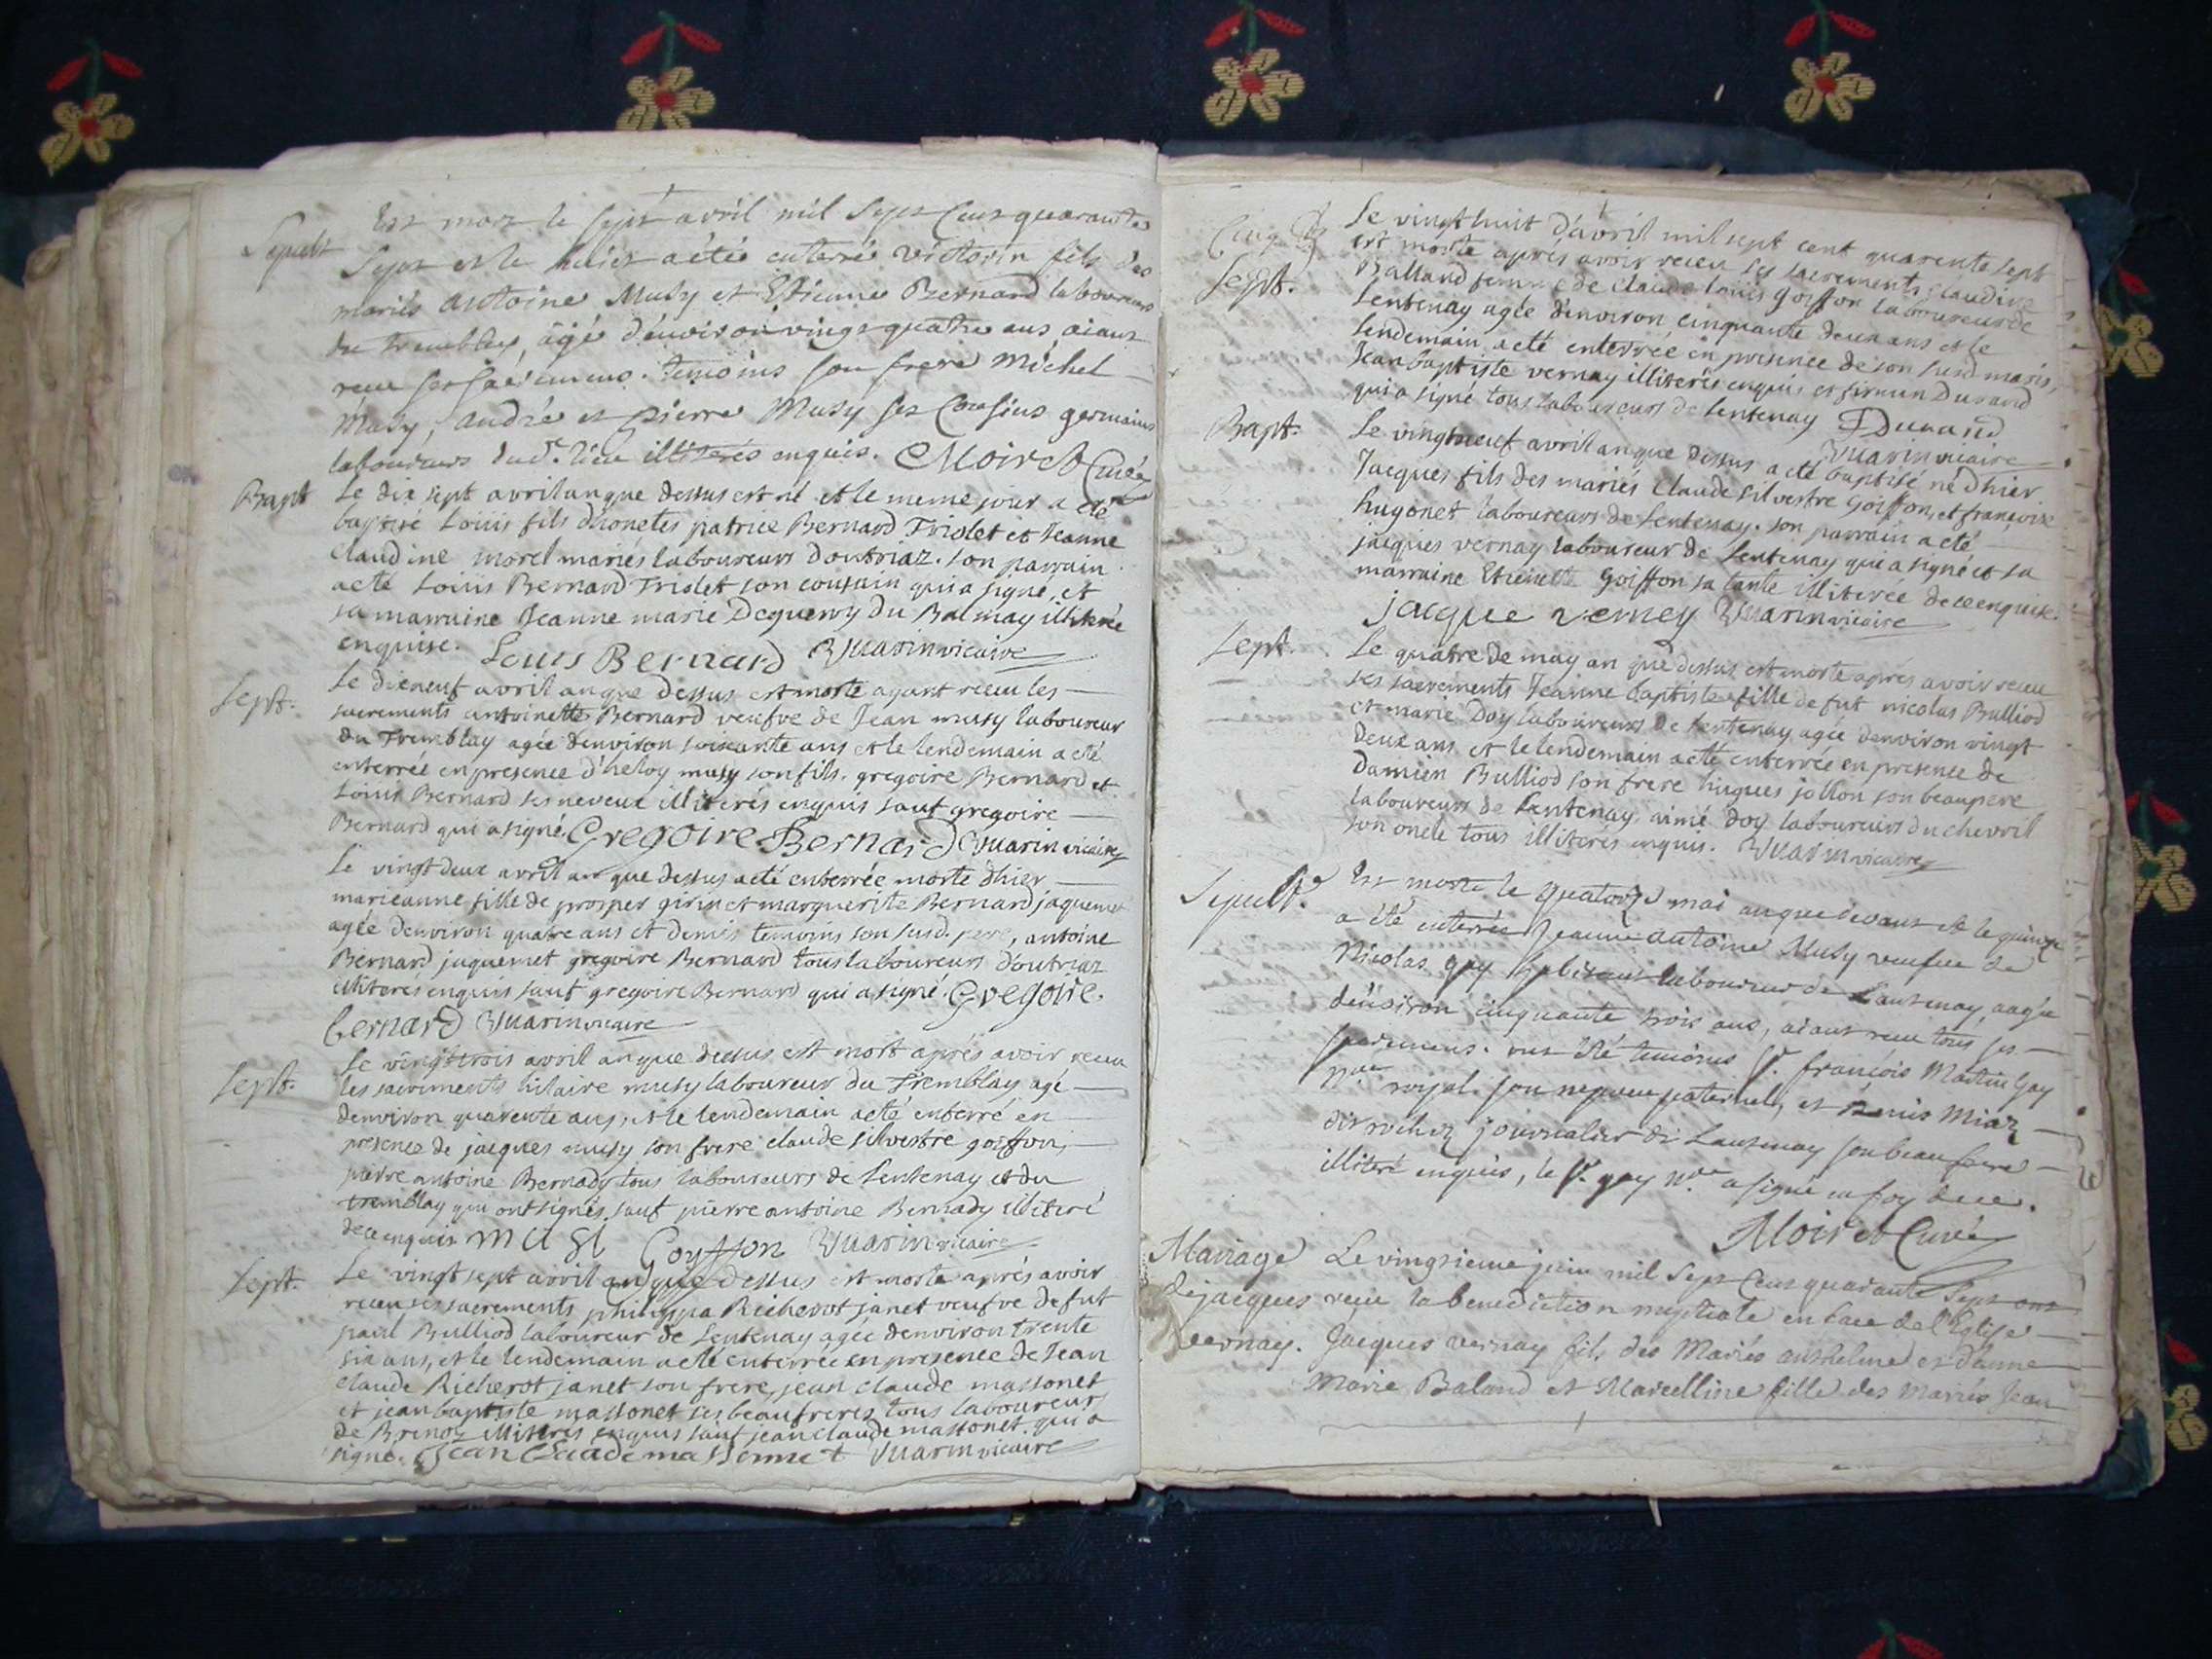 Sepult Est mort le sept avril mil Sept Cent quarante
Sept et le huict a étée enterré Victorin fils des
mariés antoine Musy et Etienne Bernard laboureurs
du tremblay, âgé d'environ vingt quatre ans aiant
receu ses sacremens. temoins son frere Michel
Musy, André et pierre Musy ses Cousins germains
laboureurs dud. lieu illiterés enquis. Moiret Curé
Bapt Le dix sept avril an que dessus est né et le meme jour a eté
baptisé Loüis fils d'honetes patrice Bernard Triolet et Jeanne
Claudine morel mariés laboureurs doutriaz. son parrain
a eté Loüis Bernard Triolet son cousain qui a signé, et
sa marraine Jeanne marie Dequerry du Balmay illiterée
enquise. Louis Bernard Vuarin vicaire
Sept. Le dixneuf avril an que dessus est morte ayant receu les
sacrements antoinette Bernard veufve de Jean musy laboureur
du Tremblay agée denviron soixante ans et le lendemain a eté
enterrée en presence d'heloy musy son fils. gregoire Bernard et
Loüis Bernard ses neveux illiterés enquis sauf gregoire
Bernard qui a signé. Gregoire Bernard Vuarin vicaire
Le vingt deux avril an que dessus a eté enterrée morte dhier
marieanne fille de prosper girin et marguerite Bernard jaquemet
agée denviron quatre ans et demis temoins son susd. pere, antoine
Bernard jaquemet gregoire Bernard tous laboureurs d'outriaz
illiterés enquis sauf gregoire Bernard qui a signé. Gregoire.
bernard Vuarin vicaire
Sept. Le vingt trois avril an que dessus est mort aprés avoir receu
les sacrements hilaire musy laboureur du Tremblay agé
denviron quarente ans, et le lendemain a eté enterré en
presence de jacques musy son frere claude silvestre goiffon,
pierre antoine Bernady tous laboureurs de Lentenay et du
tremblay qui ont signés sauf pierre antoine Bernady illiteré
de ce enquis musi Goyffon Vuarin vicaire
Sept. Le vingt sept avril an que dessus est morte aprés avoir
receu ses sacrements philippa Richerot janet veufve de fut
paul Bulliod laboureur de Lentenay agée denviron trente
six ans, et le lendemain a eté enterrée en presence de Jean
claude Richerot janet son frere, jean claude massonet
et jean baptiste massonet ses beaufreres tous laboureurs
de Brenoz illiterés enquis sauf jean claude massonet qui a
signé. Jean Claude massonnet Vuarin vicaire
Le vingt huit d'avril mil sept cent quarente sept
Sept. est morte aprés avoir receu ses sacrements claudine
Balland femme de claude loüis goiffon laboureur de
Lentenay agée d'environ cinquante deux ans et le
lendemain a eté enterrée en presence de son susd maris,
Jean baptiste vernay illiterés enquis et firmin Durand
qui a signé tous laboureurs de Lentenay FDurand
Vuarin vicaire
Bapt. Le vingtneuf avril an que dessus a eté baptisé né dhier
Jacques fils des mariés Claude silvestre Goiffon, et françoise
hugonet laboureurs de Lentenay. son parrain a eté
jacques vernay laboureur de Lentenay qui a signé et sa
marraine Etienette Goiffon sa tante illiterée de ce enquise.
jacque verney Vuarin vicaire
Sept. Le quatre de may an que dessus est morte aprés avoir receu
ses sacrements Jeanne baptiste fille de fut nicolas Bulliod
et marie Doy laboureurs de Lentenay agée denviron vingt
deux ans et le lendemain a eté enterrée en presence de
Damien Bulliod son frere hugues jollon son beaupere
laboureurs de Lentenay, aimé doy laboureurs du chevril
son oncle tous illiterés enquis. Vuarin vicaire
Sepult. Est morte le quatorze mai an que devant et le quinze
a été enterrée Jeanne antoine Musy veufve de
Nicolas gay laboureur de Lantenay, aagée
d'environ cinquante trois ans, aiant receu tous ses
sacremens. ont été temoins Sr. françois Martin Gay
nre royal son neveu paternel, et Denis Miaz
journalier de Lantenay son beaufrere
illiteré enquis, le Sr. gay nre. a signé en foy de ce.
Moiret Curé
Mariage Le vingtieme juin mil Sept Cent quarante Sept ont
de jacques receu la benediction nuptiale en face de l'Eglise
vernay. Jacques vernay fils des Mariés anthelme et danne
Marie Baland et Marcelline fille des mariés Jean